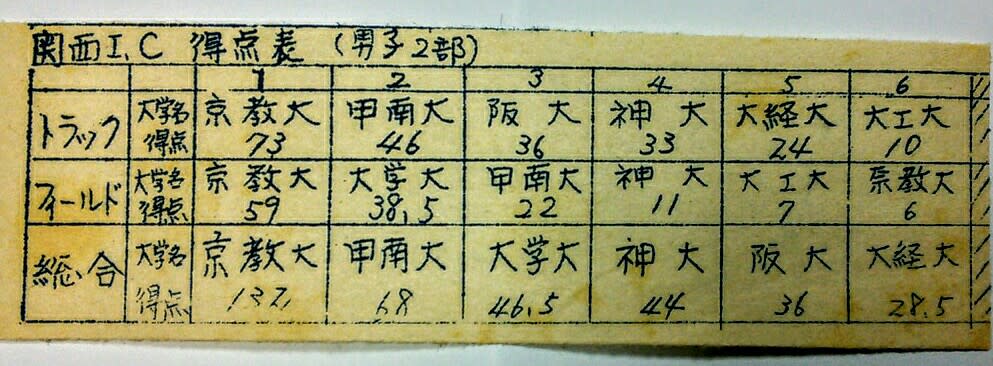 関西I.C 得点表 (男子2部)
1 2 3 4 5 6
トラック 大学名 京教大 甲南大 阪大 神大 大経大 大工大
得点 73 46 36 33 24 10
フィールド 大学名 京教大 大学大 甲南大 神大 大工大 京教大
得点 59 38.5 22 11 7 6
総合 大学名 京教大 甲南大 大学大 神大 阪大 大経大
得点 132 68 46.5 44 36 28.5